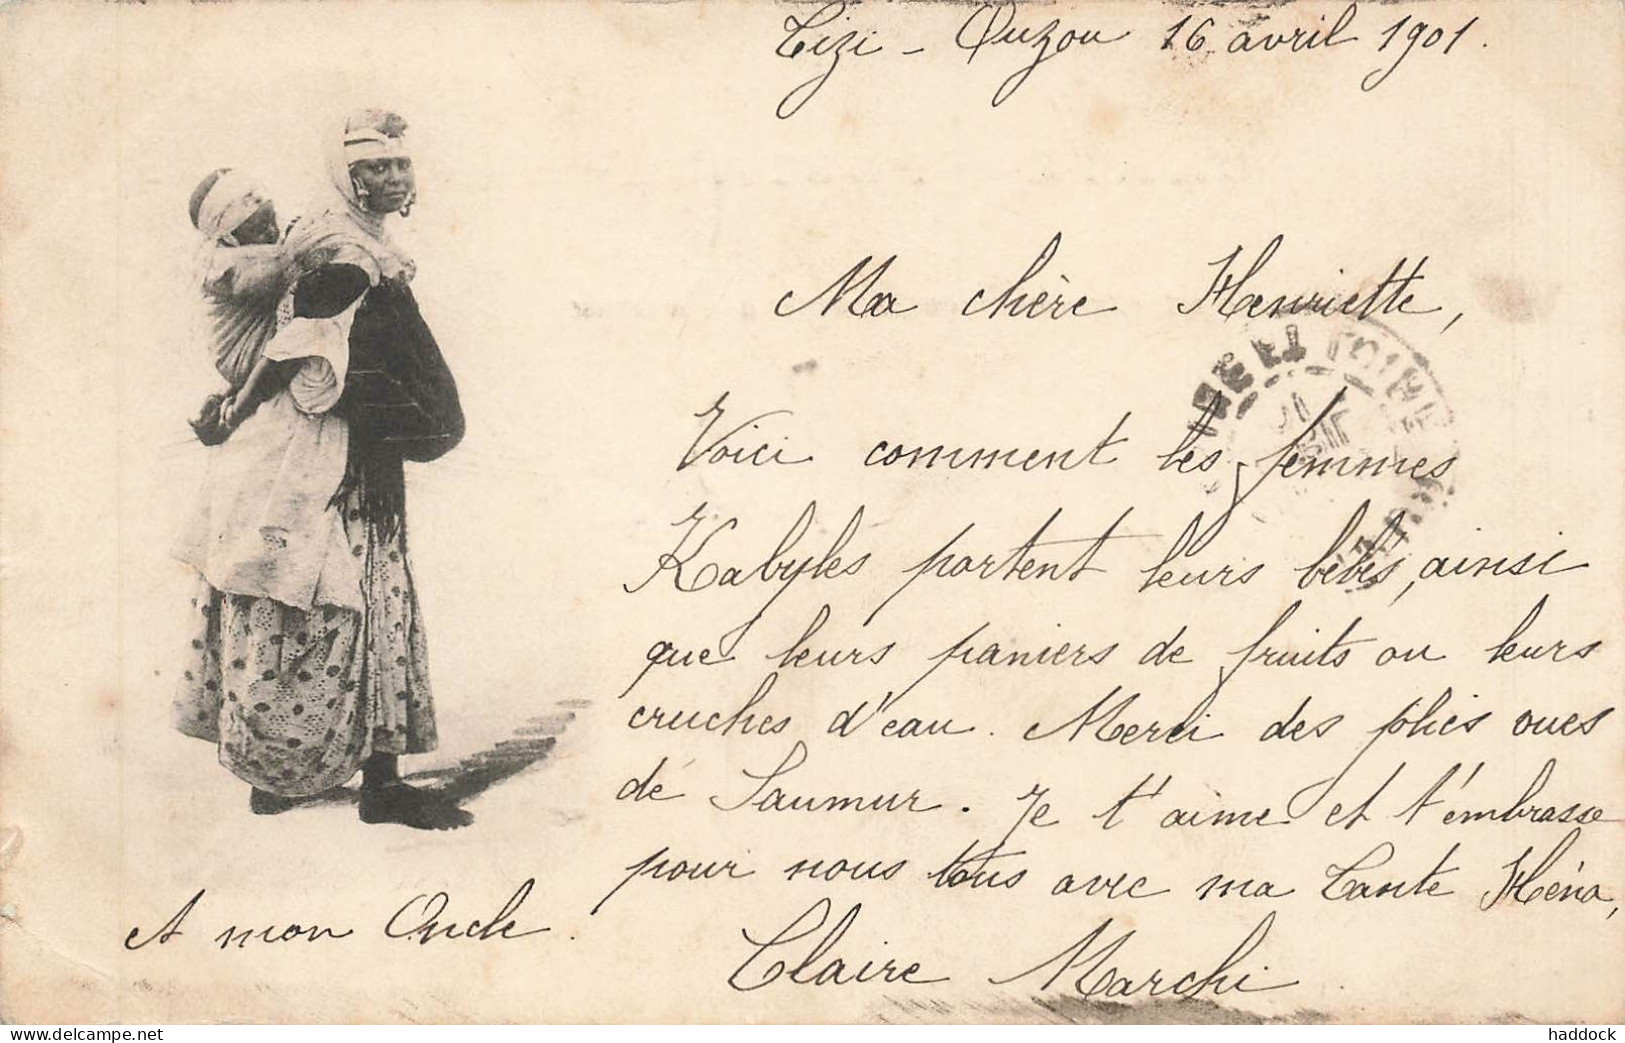 Tizi-Ouzou 16 avril 1901.
Ma chère Henriette,
Voici comment les femmes
Kabyles portent leurs bébés, ainsi
que leurs paniers de fruits ou leurs
cruches d'eau. Merci des jolies vues
de Saumur. Je t'aime et t'embrasse
pour nous tous avec ma Tante Héna,
et mon Oncle.
Claire Marchi
www.delcampe.net
haddock